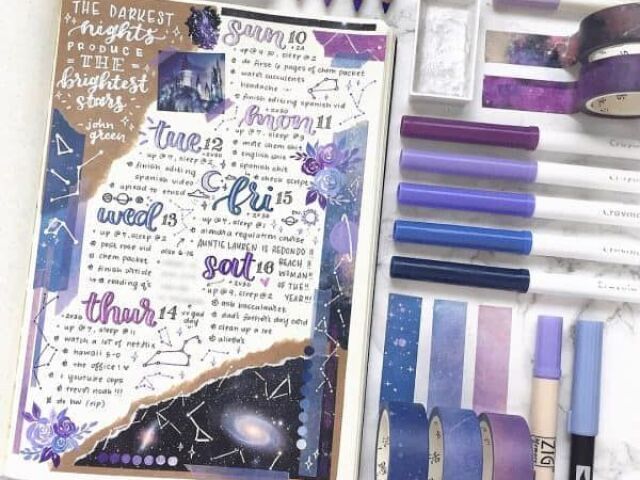 THE DARKEST
nights
PRODUCE
= THE =
brightest
stars
- john
green
sun 10
up @ 9:30, sleep @ 2
do first 6 pages of chem packet
water succulents
headache
finish editing spanish vid
mon 11
up @ 7, sleep @ 9
more chem shit
english shit
spanish shit
check script
tue 12
up @ 7, sleep @ 2
finish editing
spanish video
upload to
wed 13
up @ 7, sleep @ 2
post rose vid
chem packet
finish article
reading q's
thur 14
up @ 7, sleep @ 11
watch a lot of netflix
hawaii 5-0
the office!
youtube caps
trevor noah!!!
do hw (rip)
fri 15
up @ 7, sleep @ 1
alondra regulation course
AUNTIE LAUREN IS REDONDO
BEACH
WOMAN
OF THE
YEAR!!!
sat 16
up @ 9, sleep @ 2
ash baccalaureate
dad's father's day card
clean up a me
Crayola